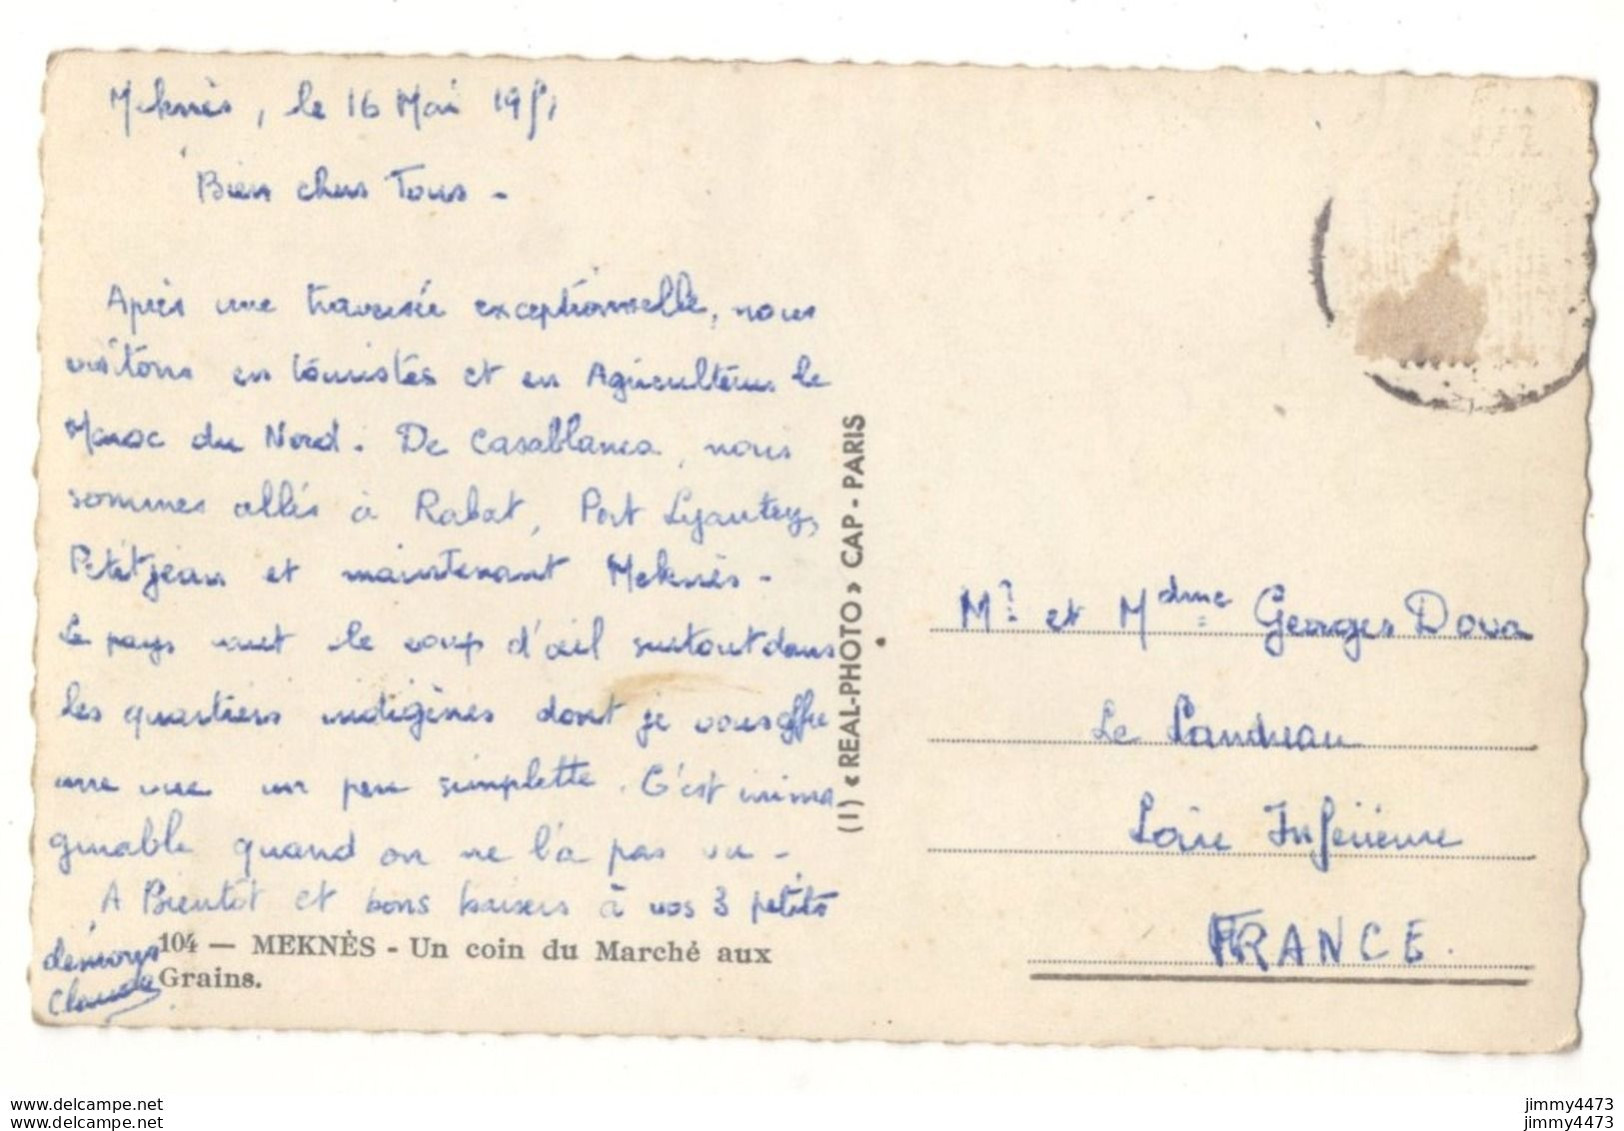 Meknès, le 16 Mai 1951
Bien chers Tous -
Après une traversée exceptionnelle, nous
visitons en touristes et en Agriculteurs le
Maroc du Nord. De Casablanca, nous
sommes allés à Rabat, Port Lyautey,
Petitjean et maintenant Meknès -
Le pays vaut le coup d'œil surtout dans
les quartiers indigènes dont je vous offre
une vue un peu simplette. C'est inima
ginable quand on ne l'a pas vu -
A Bientôt et bons baisers à vos 3 petits
démons
Claude
104 — MEKNÈS - Un coin du Marché aux
Grains.
(I) « REAL-PHOTO » CAP - PARIS
Mr et Mdme Georges Dova
Le Landreau
Loire Inférieure
FRANCE.
www.delcampe.net
www.delcampe.net
jimmy4473
jimmy4473